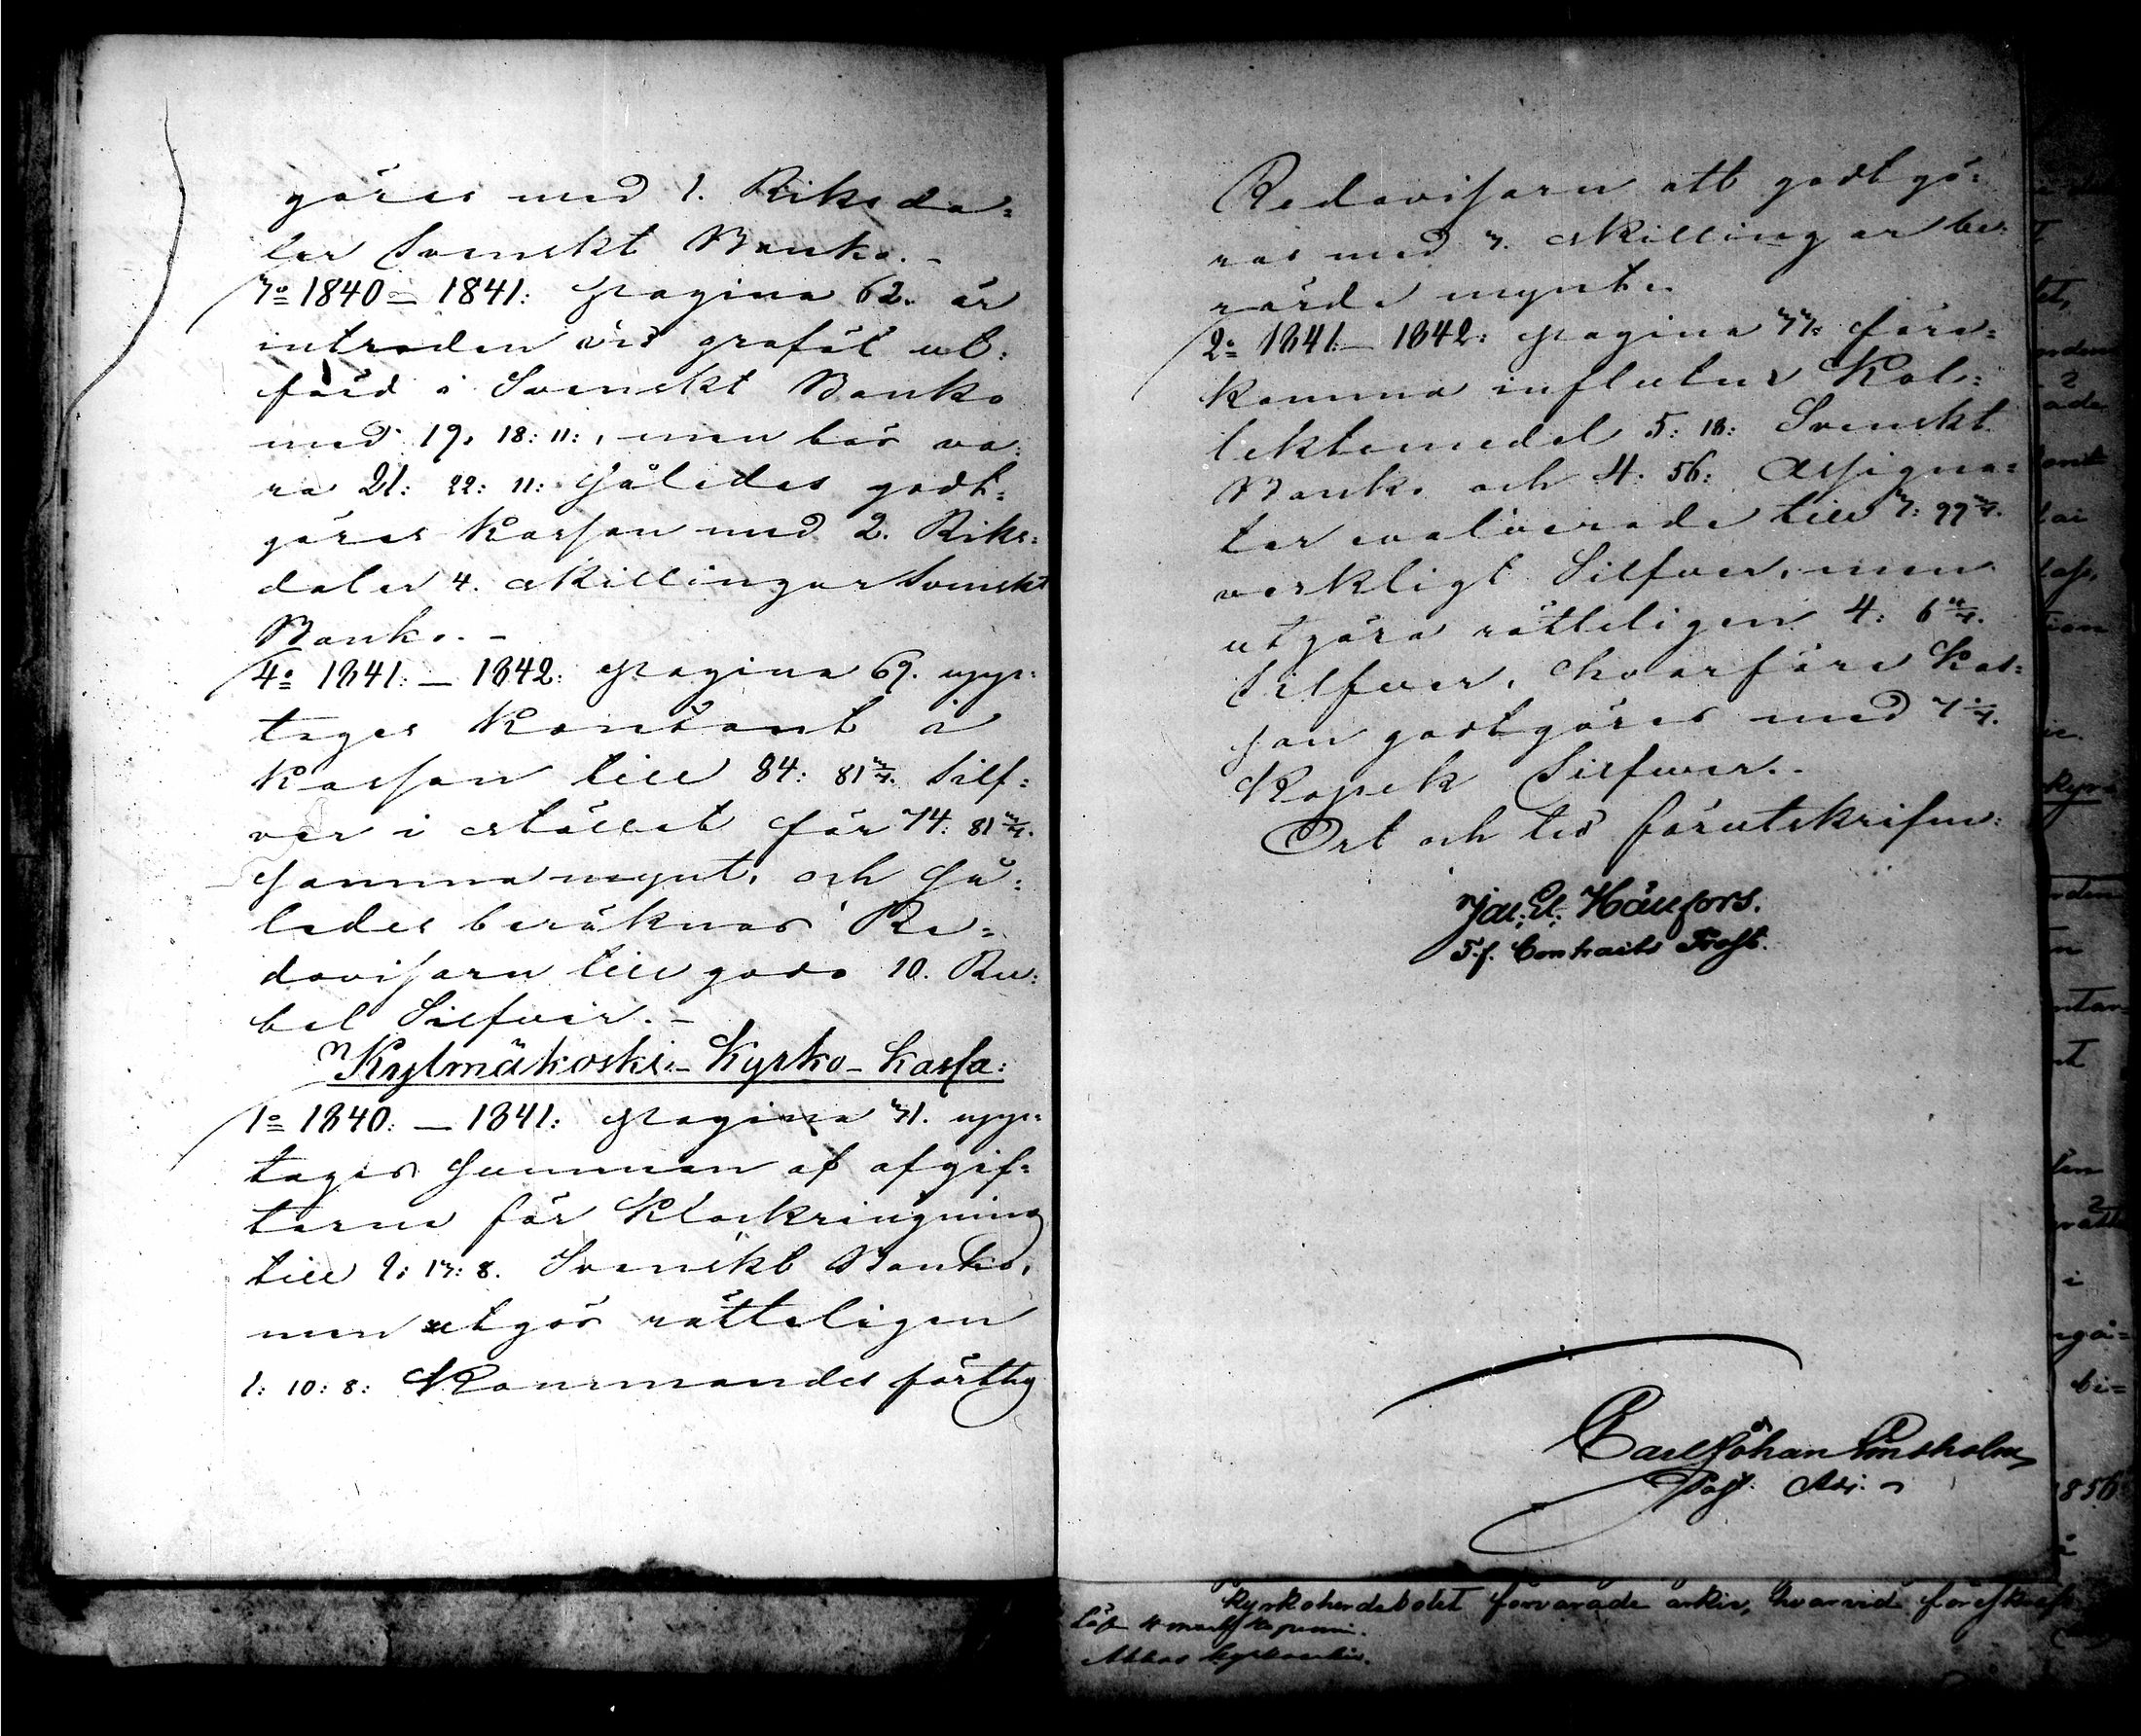 göres med 1. Riksda=
ler Svenskt Banko. -
3o 1840 - 1841: Pagina 62. är
intraden vid graföl ut=
förd i Svenskt Banko
med 19. 18: 11:, men bör va=
ra 21: 22: 11: Således godt=
göres Kassan med 2. Riks=
daler 4. skillingar Svenskt
Banko. -
4o 1841: - 1842: Pagina 69. upp=
tages Kontant i
Kassan till 84: 81 3/7. Silf=
ver i stället för 74: 81 3/7.
samma mynt, och så=
ledes beräknas Re=
dovisaren till godo 10. Ru=
bel Silfver. -
Kylmäkoski - Kyrko - Kassa:
1o 1840: - 1841: Pagina 71. upp=
tages Summan af afgif=
terne för Klockringning
till 1: 17: 8. Svenskt Banko,
men utgör rätteligen
1: 10: 8: Kommandes förthy
Redovisaren att godtgö=
ras med 7. skillingar be=
rörde mynt.
2o 1841: - 1842: Pagina 77: före=
komma influtne Kol=
lektemedel 5: 18: Svenskt
Banko och 4. 56: Assigna=
ter evalverade till 3: 99
verkligt Silfver, men
utgöra rätteligen 4: 6
Silfver, hvarföre Kas=
san godtgöres med 7
Kopek Silfver. -
Ort och tid förutskrifne:
Jac: El: Hällfors.
T.f. Contracts Prost.
Carl Johan
Past. Adj.
kyrkoherdebolet förvarade arkiv, hvarvid föreskrefs